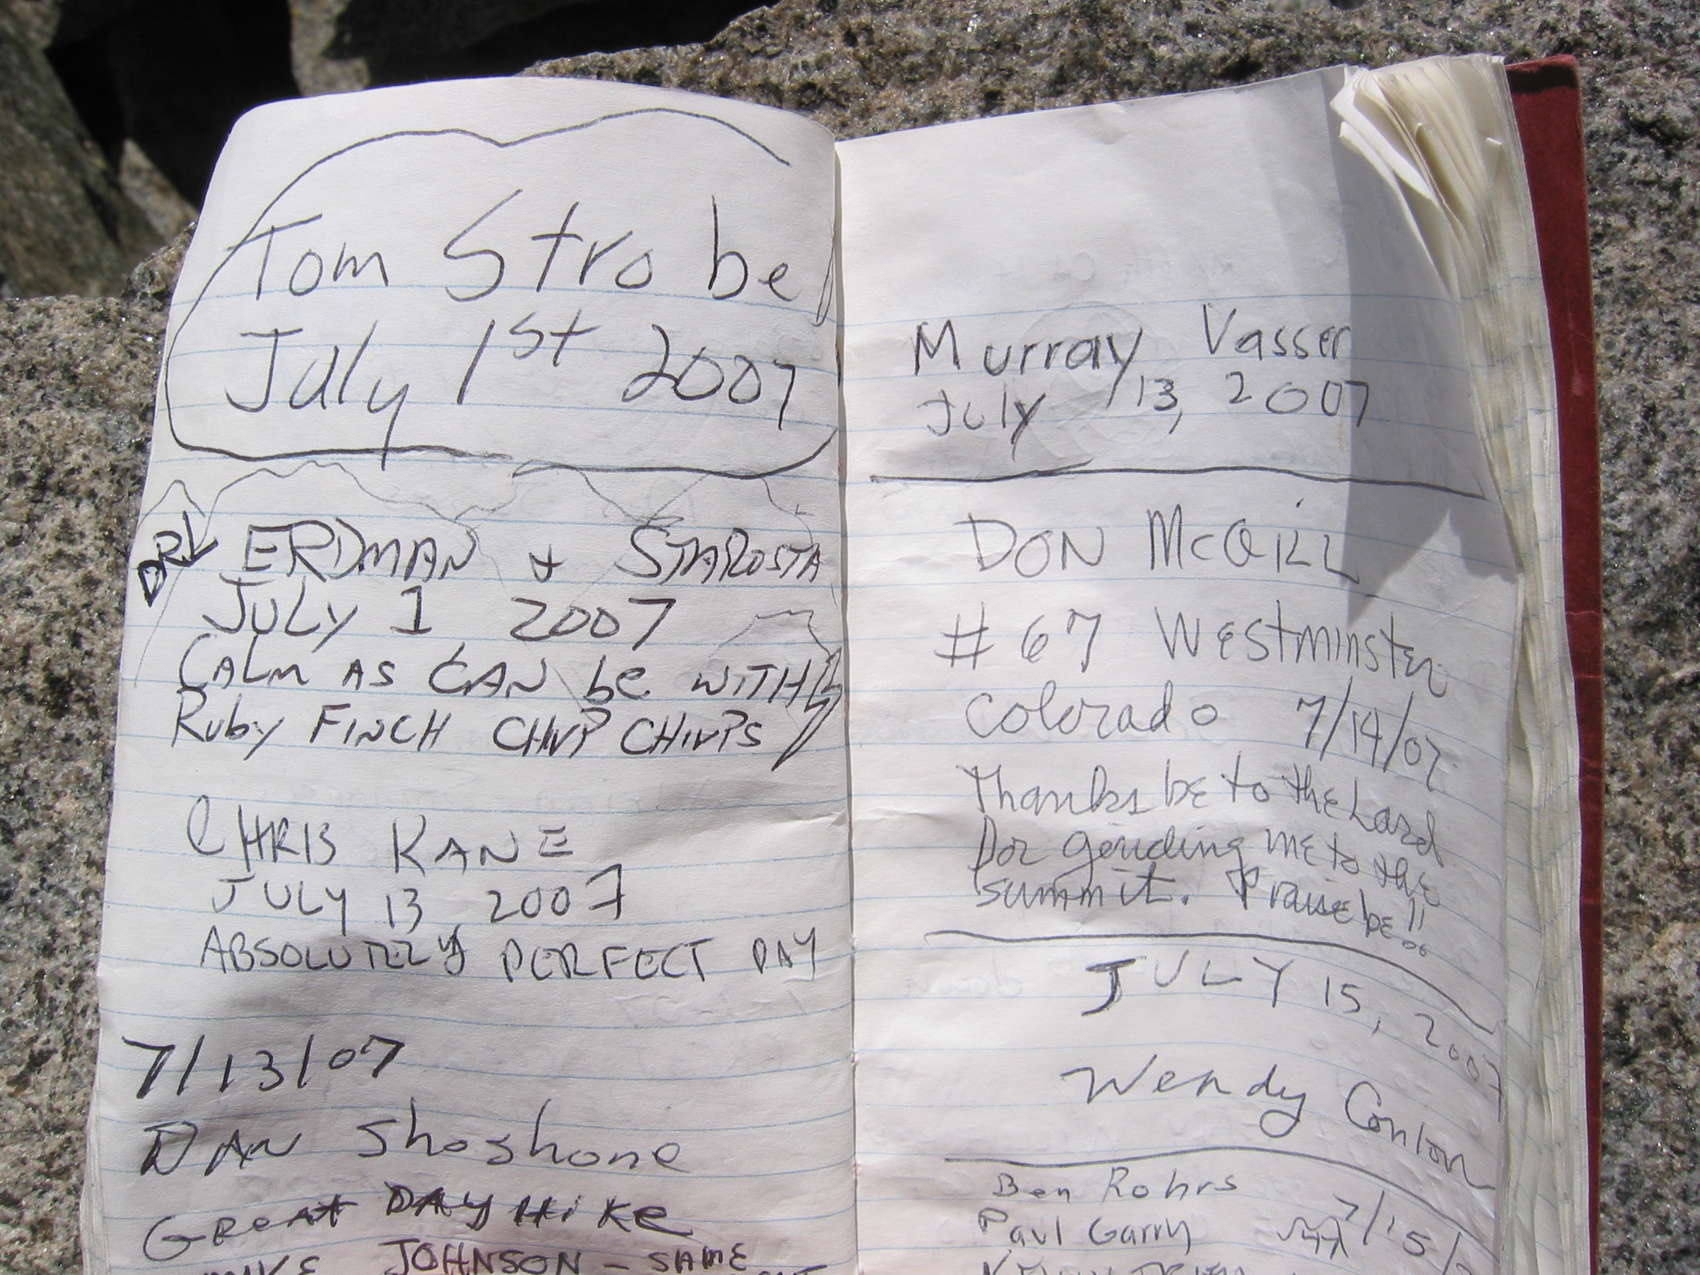 Tom Strobel
July 1st 2007
DRL
ERDMAN + STAROSTA
JULY 1 2007
CALM AS CAN be WITH
Ruby FINCH CHIRP CHIRPS
CHRIS KANE
JULY 13 2007
ABSOLUTELY PERFECT DAY
7/13/07
DAN Shoshone
GREAT DAY HiKe
MIKE JOHNSON - SAME
Murray Vasser
July 13, 2007
DON McGILL
# 67 Westminster
Colorado 7/14/07
Thanks be to the Lord
for guiding me to the
summit. Praise be!!
JULY 15, 2007
Wendy Conlon
Ben Rohrs
Paul Garry 7/15/